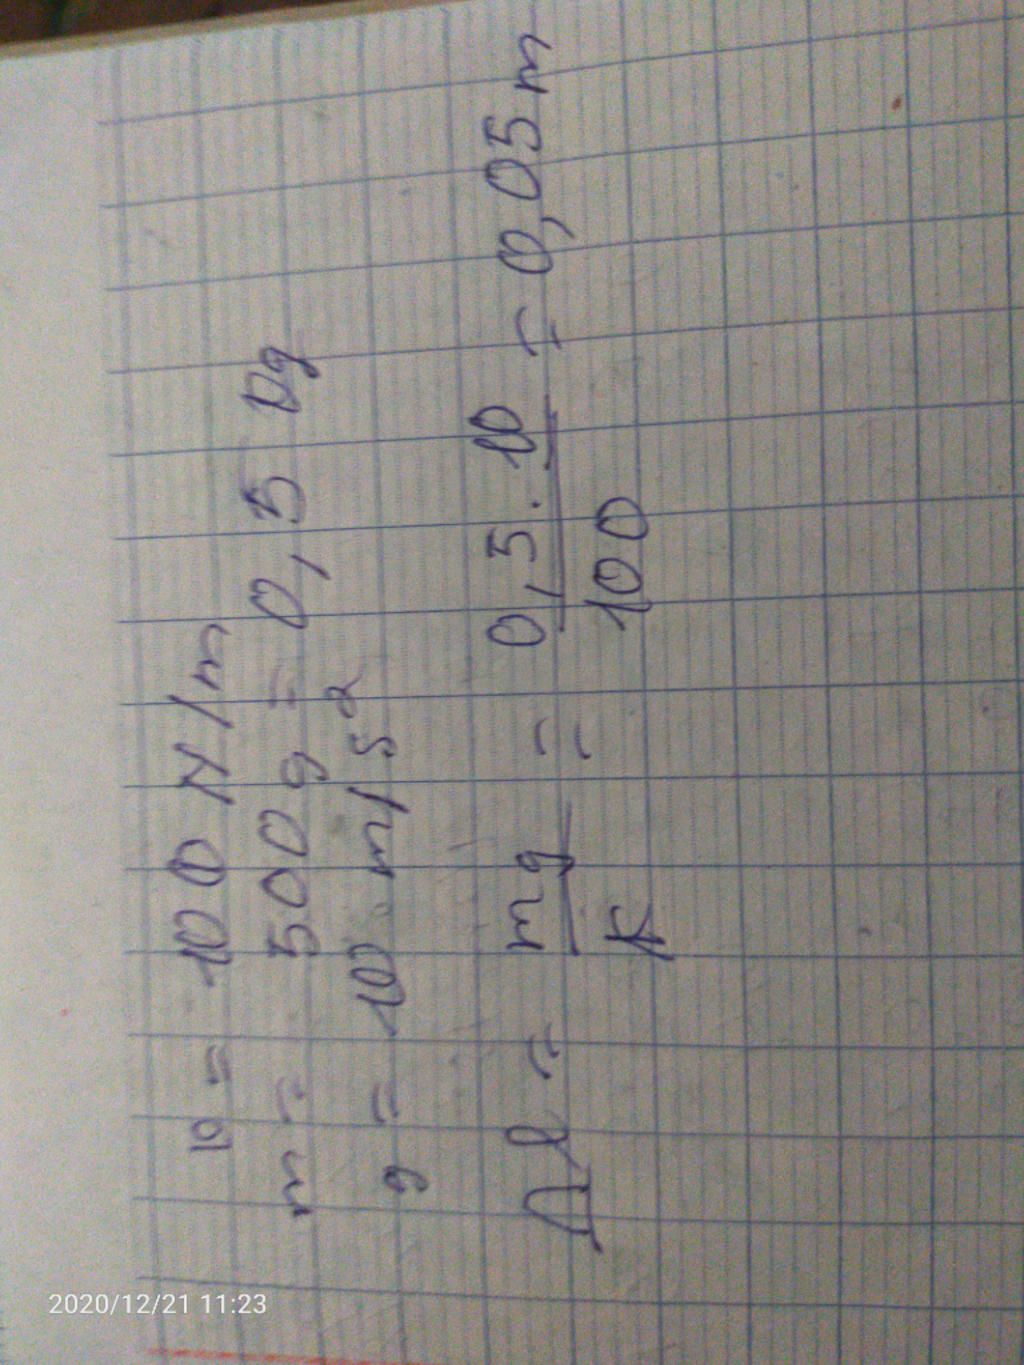 10 = 100 N/m
m = 500 g = 0,5 Dg
g = 10 m/s²
Δl = mg/K = 0,5·10/100 = 0,05 m
2020/12/21 11:23